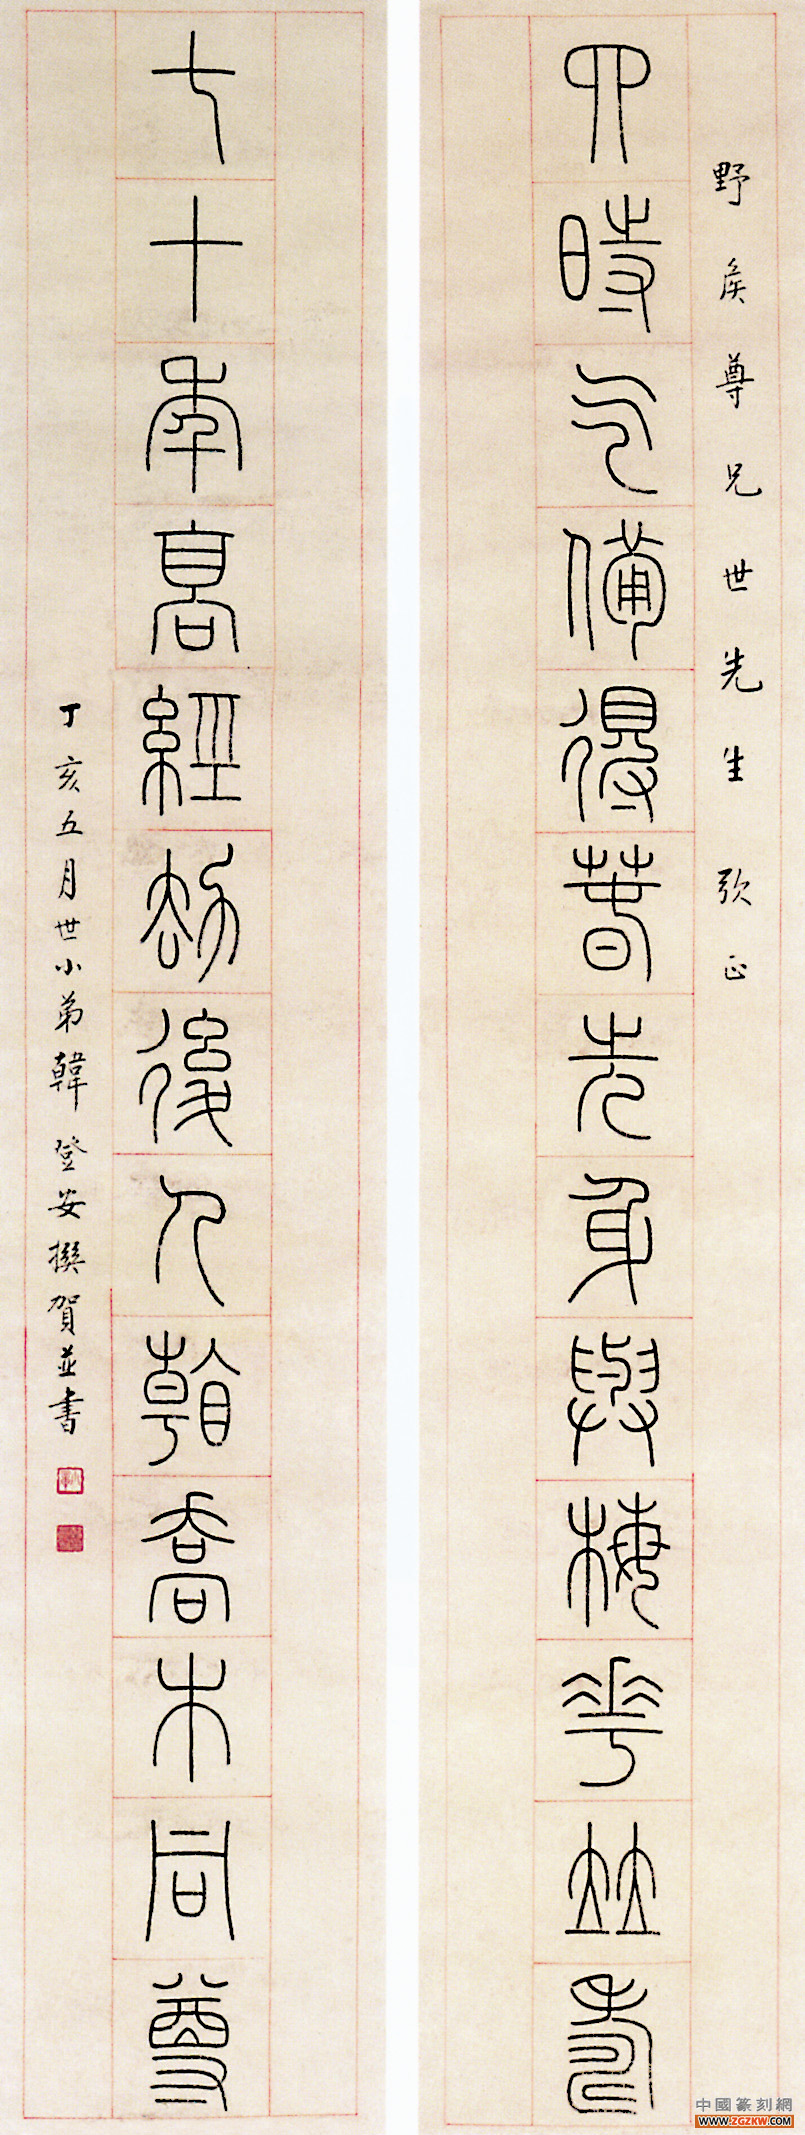 野矦尊兄世先生 弞正
四時气備得春先身與梅華竝壽
七十年高經劫後人看喬木同尊
丁亥五月世小弟韓登安撰賀並書
中國篆刻網
WWW.ZGZKW.COM